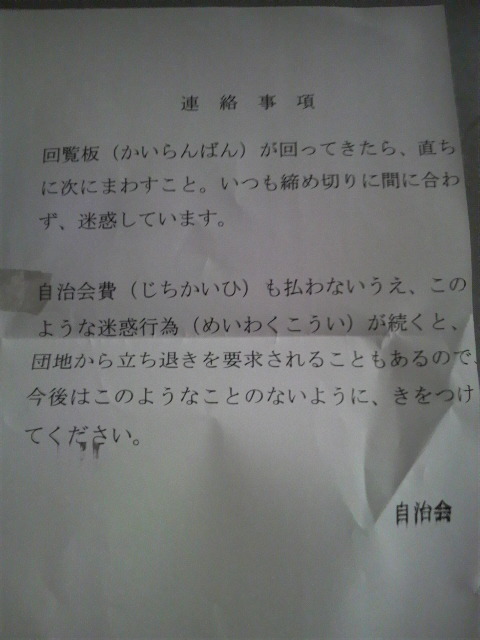 連絡事項
回覧板（かいらんばん）が回ってきたら、直ち
に次にまわすこと。いつも締め切りに間に合わ
ず、迷惑しています。
自治会費（じちかいひ）も払わないうえ、この
ような迷惑行為（めいわくこうい）が続くと、
団地から立ち退きを要求されることもあるので、
今後はこのようなことのないように、きをつけ
てください。
自治会